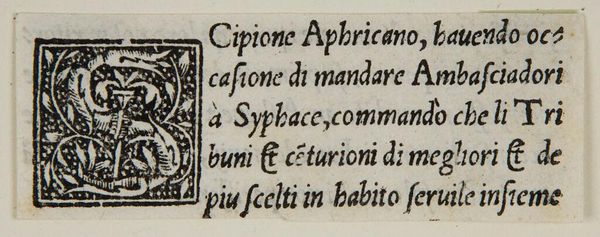 SCipione Aphricano, hauendo oc=
casione di mandare Ambasciadori
à Syphace, commandò che li Tri
buni & cēturioni di megliori & de
piu scelti in habito seruile insieme